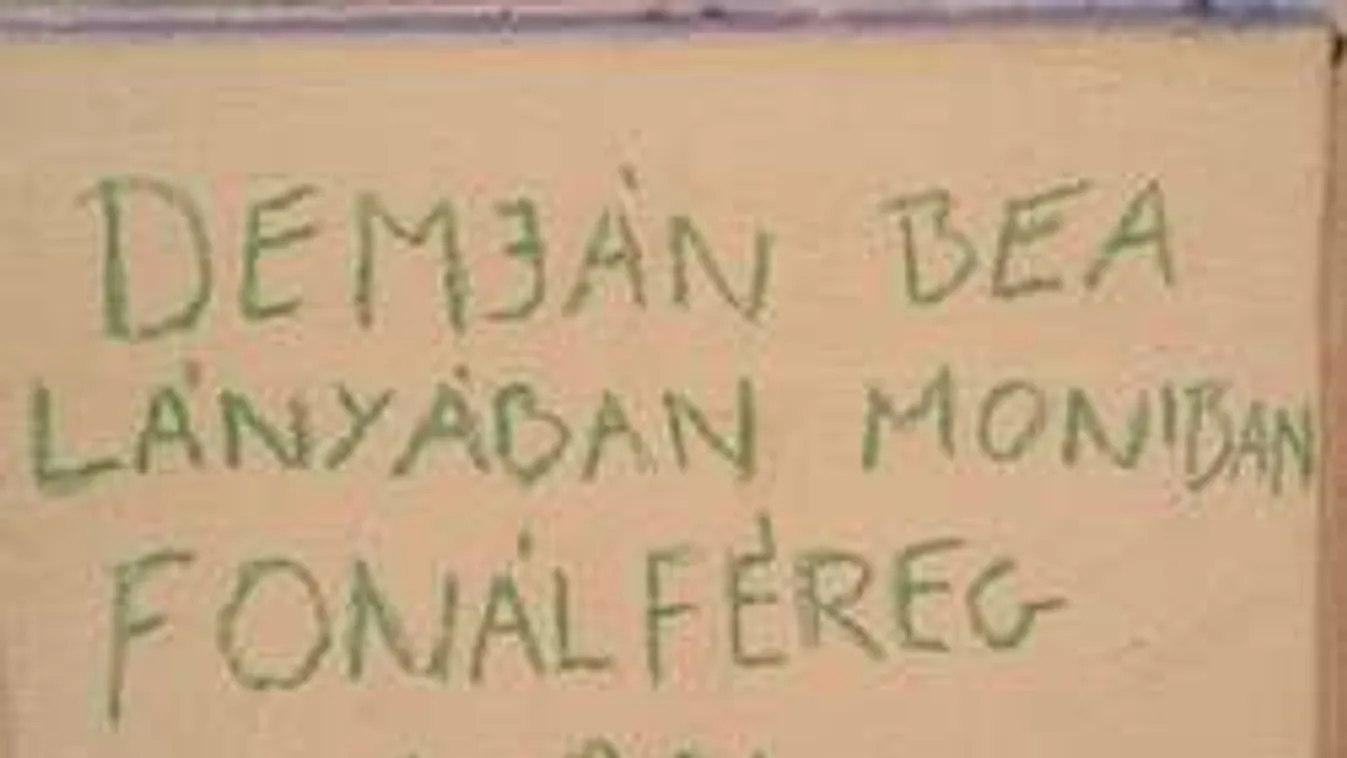 DEMJÁN BEA
LÁNYÁBAN MONIBAN
FONÁLFÉREG